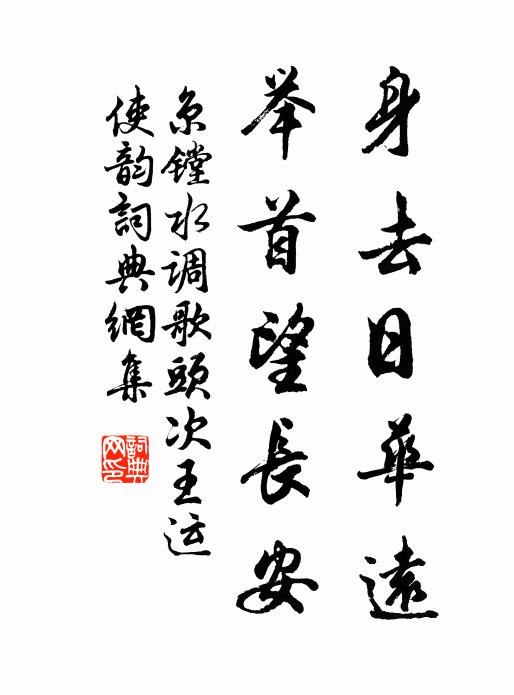 身去日華遠
举首望長安
京镗水调歌頭次王运
使韵詞典網集
詞典网印